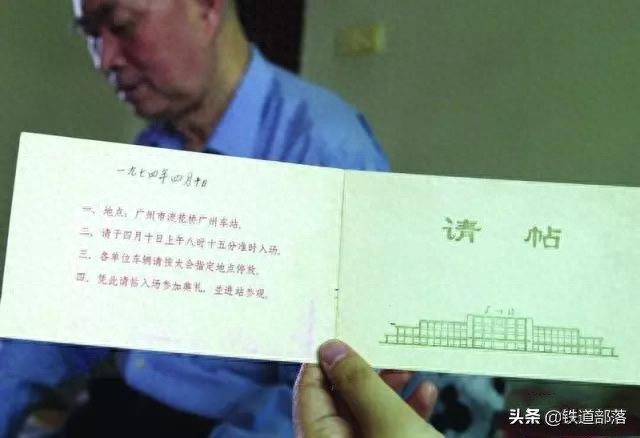 一九七四年四月十日
一、地点：广州市流花桥广州车站。
二、请于四月十日上午八时十五分准时入场。
三、各单位车辆请按大会指定地点停放。
四、凭此请帖入场参加典礼，並进站参观。
请帖
头条 @铁道部落